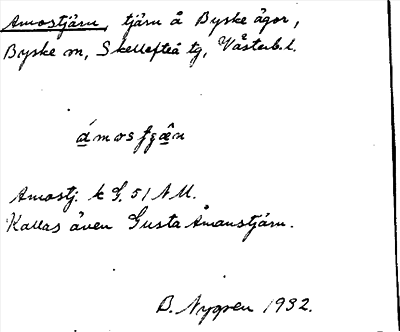 Amostjärn, tjärn å Byske ägor,
Byske sn, Skellefteå tg, Västerb. l.
Amostj. k G. 51 N.M.
Kallas även Gusta Ånanstjärn.
B. Nygren 1932.